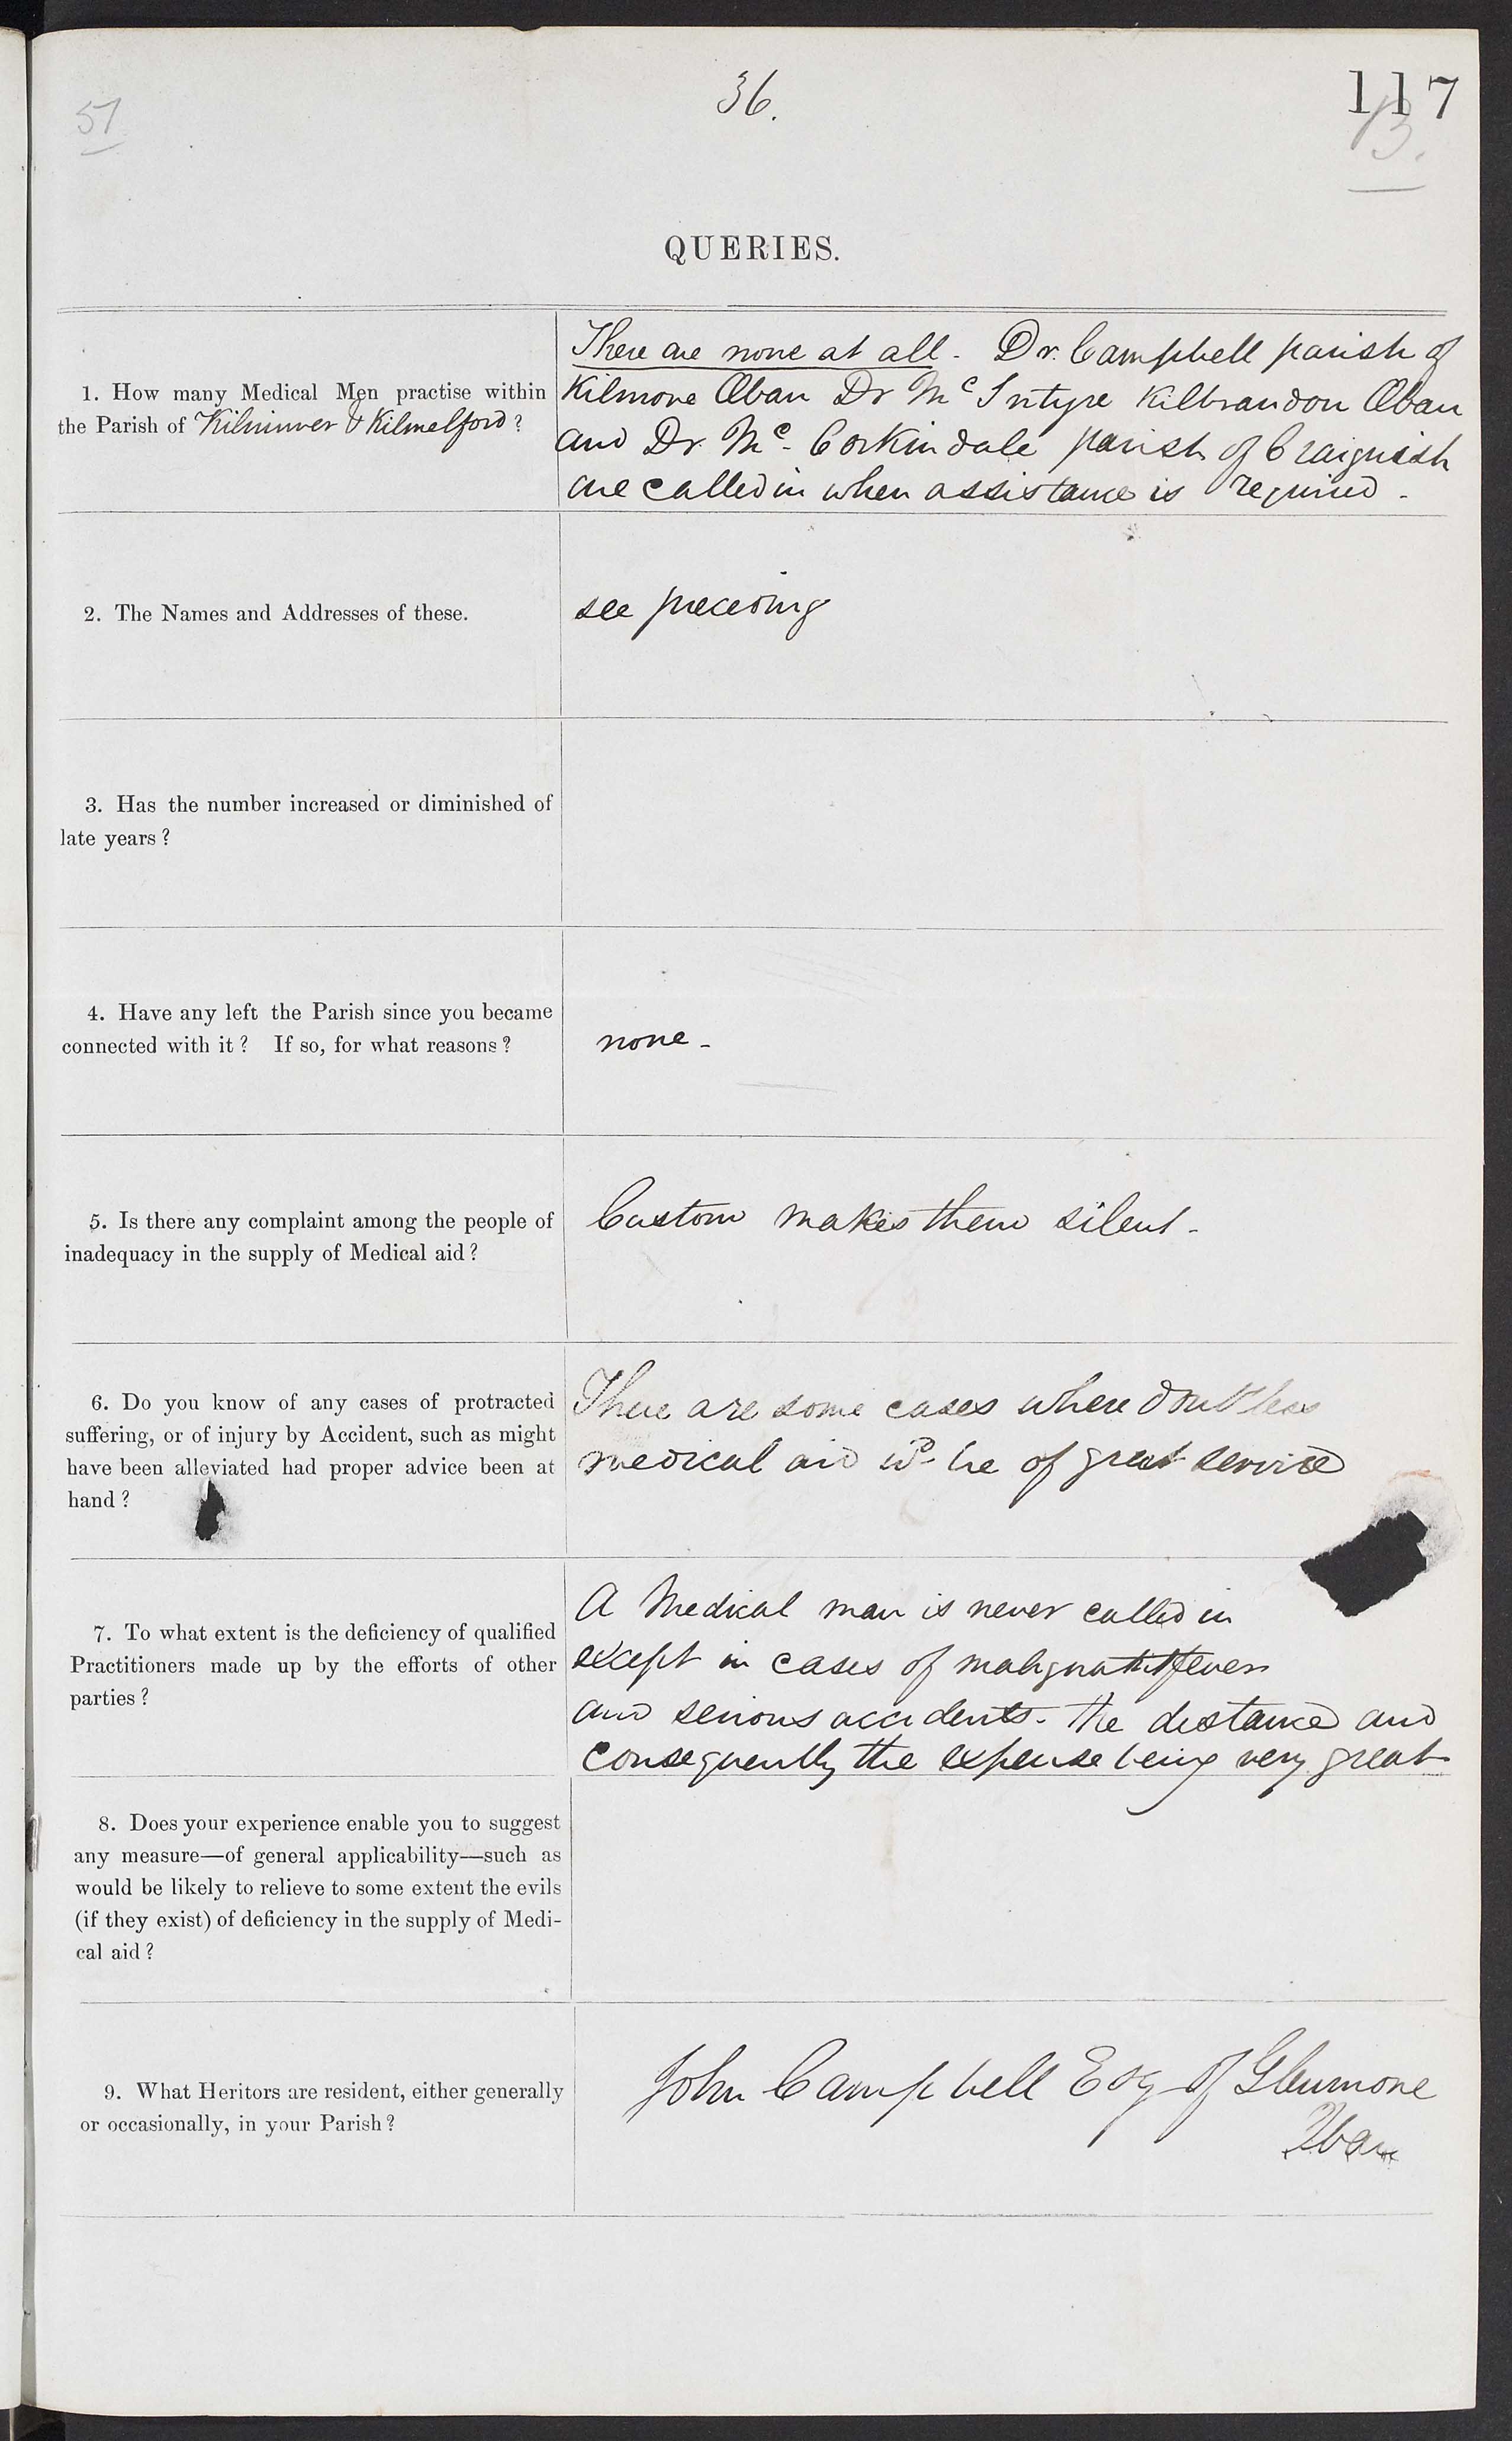 57
36.
117
13.
QUERIES.
1. How many Medical Men practise within
the Parish of Kilninver & Kilmelford?
There are none at all - Dr. Campbell parish of
Kilmore Oban Dr Mc Intyre Kilbrandon Oban
and Dr. Mc. Corkindale parish of Craignish
are called in when assistance is required -
2. The Names and Addresses of these.
see preceding
3. Has the number increased or diminished of
late years?
4. Have any left the Parish since you became
connected with it? If so, for what reasons?
none -
5. Is there any complaint among the people of
inadequacy in the supply of Medical aid?
Custom makes them silent -
6. Do you know of any cases of protracted
suffering, or of injury by Accident, such as might
have been alleviated had proper advice been at
hand?
There are some cases where doubtless
medical aid wd be of great service
7. To what extent is the deficiency of qualified
Practitioners made up by the efforts of other
parties?
A Medical man is never called in
except in cases of malignant fever
and serious accidents - the distance and
consequently the expense being very great
8. Does your experience enable you to suggest
any measure—of general applicability—such as
would be likely to relieve to some extent the evils
(if they exist) of deficiency in the supply of Medi-
cal aid?
9. What Heritors are resident, either generally
or occasionally, in your Parish?
John Campbell Esq of Glenmore
Oban